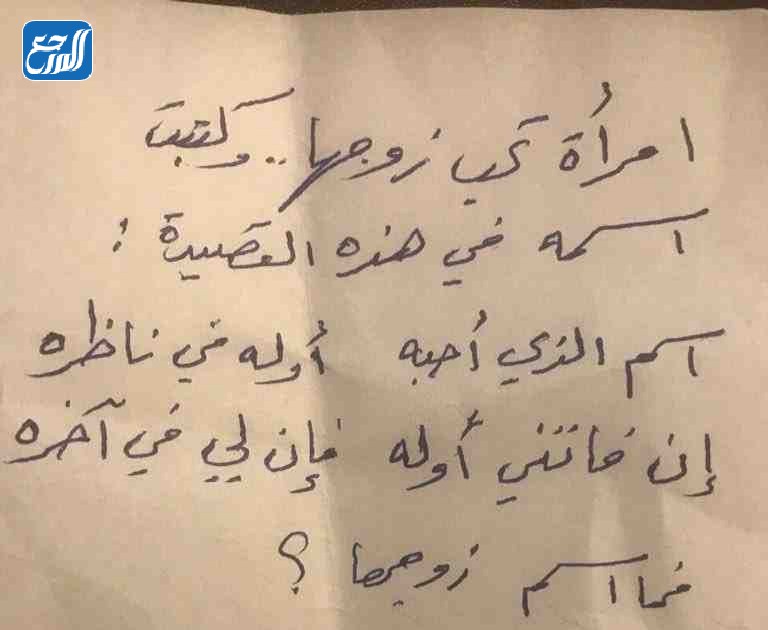 المرجع
امرأة تحب زوجها .. وكتبت
اسمه في هذه القصيدة :
اسم الذي أحبه أوله في ناظره
إن فاتني أوله فإن لي في آخره
فما اسم زوجها ؟